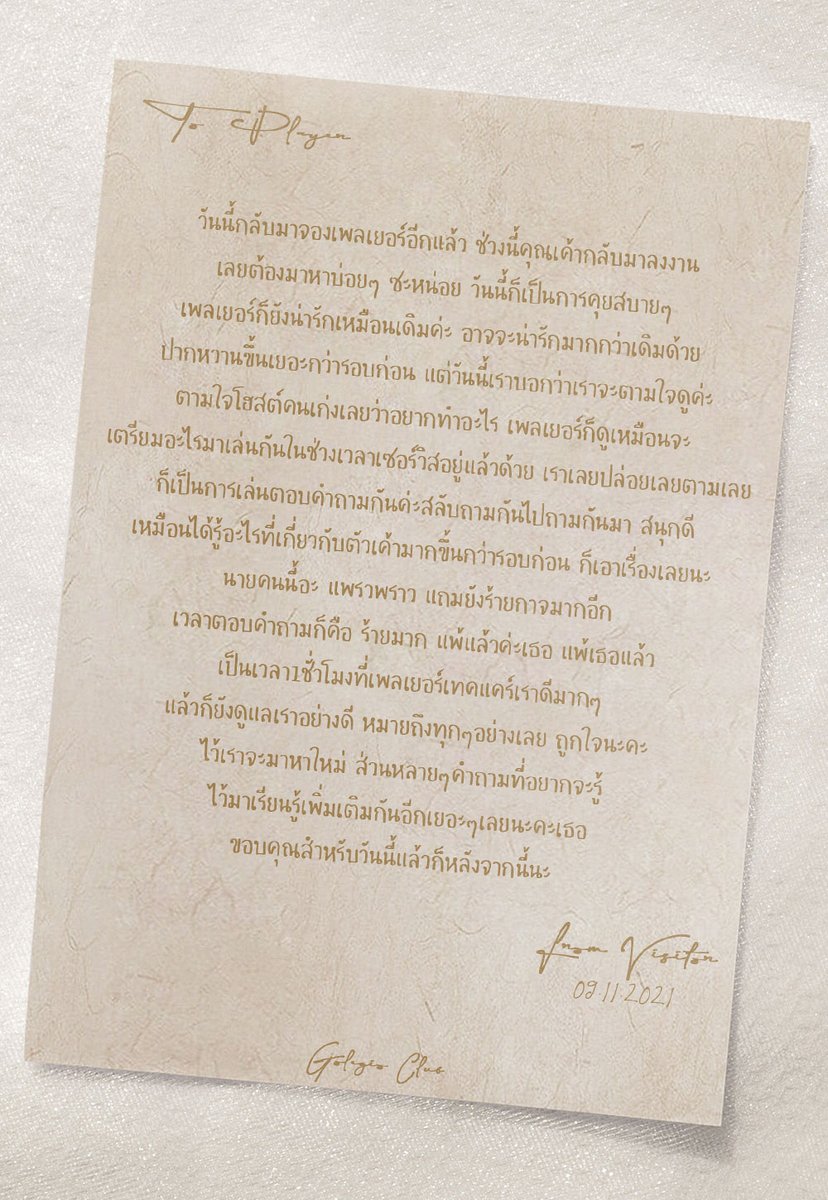 To Player
วันนี้กลับมาจองเพลเยอร์อีกแล้ว ช่วงนี้คุณเค้ากลับมาลงงาน
เลยต้องมาหาบ่อยๆ ซะหน่อย วันนี้ก็เป็นการคุยสบายๆ
เพลเยอร์ก็ยังน่ารักเหมือนเดิมค่ะ อาจจะน่ารักมากกว่าเดิมด้วย
ปากหวานขึ้นเยอะกว่ารอบก่อน แต่วันนี้เราบอกว่าเราจะตามใจดูค่ะ
ตามใจโฮสต์คนเก่งเลยว่าอยากทำอะไร เพลเยอร์ก็ดูเหมือนจะ
เตรียมอะไรมาเล่นกันในช่วงเวลาเซอร์วิสอยู่แล้วด้วย เราเลยปล่อยเลยตามเลย
ก็เป็นการเล่นตอบคำถามกันค่ะสลับถามกันไปถามกันมา สนุกดี
เหมือนได้รู้อะไรที่เกี่ยวกับตัวเค้ามากขึ้นกว่ารอบก่อน ก็เอาเรื่องเลยนะ
นายคนนี้อะ แพรวพราว แถมยังร้ายกาจมากอีก
เวลาตอบคำถามก็คือ ร้ายมาก แพ้แล้วค่ะเธอ แพ้เธอแล้ว
เป็นเวลา1ชั่วโมงที่เพลเยอร์เทคแคร์เราดีมากๆ
แล้วก็ยังดูแลเราอย่างดี หมายถึงทุกๆอย่างเลย ถูกใจนะคะ
ไว้เราจะมาหาใหม่ ส่วนหลายๆคำถามที่อยากจะรู้
ไว้มาเรียนรู้เพิ่มเติมกันอีกเยอะๆเลยนะคะเธอ
ขอบคุณสำหรับวันนี้แล้วก็หลังจากนี้นะ
from Visitor
09.11.2021
Club